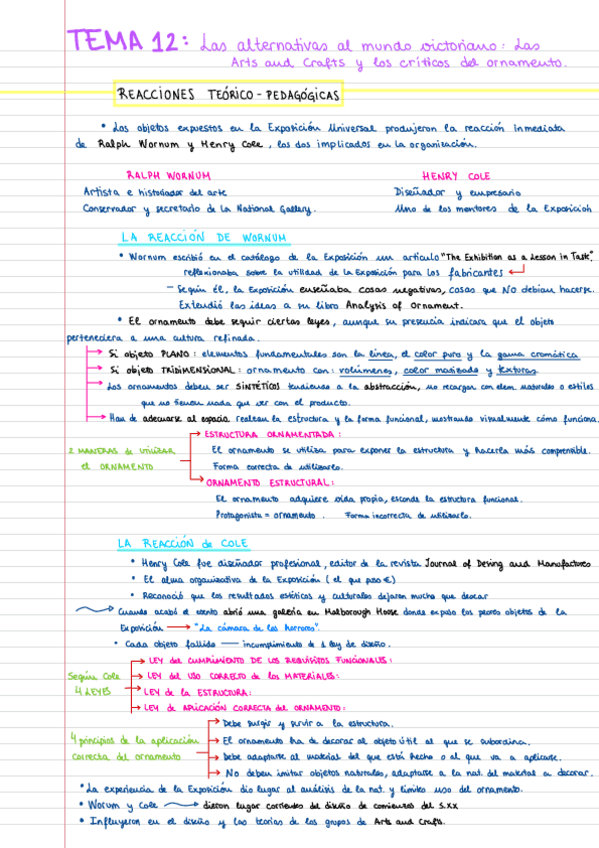 TEMA 12: Las alternativas al mundo victoriano: Las
Arts and Crafts y los críticos del ornamento.
REACCIONES TEÓRICO-PEDAGÓGICAS
• Los objetos expuestos en la Exposición Universal produjeron la reacción inmediata
de Ralph Wornum y Henry Cole, los dos implicados en la organización.
RALPH WORNUM
Artista e historiador del arte
Conservador y secretario de la National Gallery.
HENRY COLE
Diseñador y empresario
Uno de los mentores de la Exposición
LA REACCIÓN DE WORNUM
• Wornum escribió en el catálogo de la Exposición un artículo "The Exhibition as a Lesson in Taste",
reflexionaba sobre la utilidad de la Exposición para los fabricantes
- Según él, la Exposición enseñaba cosas negativas, cosas que NO debían hacerse.
Extendió las ideas a su libro Analysis of Ornament.
• El ornamento debe seguir ciertas leyes, aunque su presencia indicara que el objeto
perteneciera a una cultura refinada.
→ Si objeto PLANO: elementos fundamentales son la línea, el color puro y la gama cromática
→ Si objeto TRIDIMENSIONAL: ornamento con: volúmenes, color matizado y texturas.
→ Los ornamentos deben ser SINTÉTICOS tendiendo a la abstracción, no recargar con elem. naturales o estilos
que no tienen nada que ver con el producto.
→ Han de adecuarse al espacio, realzan la estructura y la forma funcional, mostrando visualmente cómo funciona.
2 MANERAS DE UTILIZAR
el ORNAMENTO
→ ESTRUCTURA ORNAMENTADA:
El ornamento se utiliza para exponer la estructura y hacerla más comprensible.
Forma correcta de utilizarlo.
→ ORNAMENTO ESTRUCTURAL:
El ornamento adquiere vida propia, esconde la estructura funcional.
Protagonista = ornamento. Forma incorrecta de utilizarlo.
LA REACCIÓN de COLE
• Henry Cole fue diseñador profesional, editor de la revista Journal of Desing and Manufactures
• El alma organizativa de la Exposición (el que puso €)
• Reconoció que los resultados estéticos y culturales dejaron mucho que desear
Cuando acabó el evento abrió una galería en Malborough House donde expuso los peores objetos de la
Exposición → "La cámara de los horrores".
• Cada objeto fallido — incumplimiento de 1 ley de diseño.
Según Cole
4 LEYES
→ LEY del CUMPLIMIENTO DE LOS REQUISITOS FUNCIONALES:
→ LEY del USO CORRECTO de los MATERIALES:
→ LEY de la ESTRUCTURA:
→ LEY de APLICACIÓN CORRECTA del ORNAMENTO:
4 principios de la aplicación
correcta del ornamento
→ Debe surgir y servir a la estructura.
→ El ornamento ha de decorar al objeto útil al que se subordina.
→ Debe adaptarse al material del que está hecho o al que va a aplicarse.
→ No deben imitar objetos naturales, adaptarse a la nat. del material a decorar.
• La experiencia de la Exposición dio lugar al análisis de la nat. y límites uso del ornamento.
• Worum y Cole → dieron lugar corrientes del diseño de comienzos del S.XX
• Influyeron en el diseño y las teorías de los grupos de Arts and Crafts.